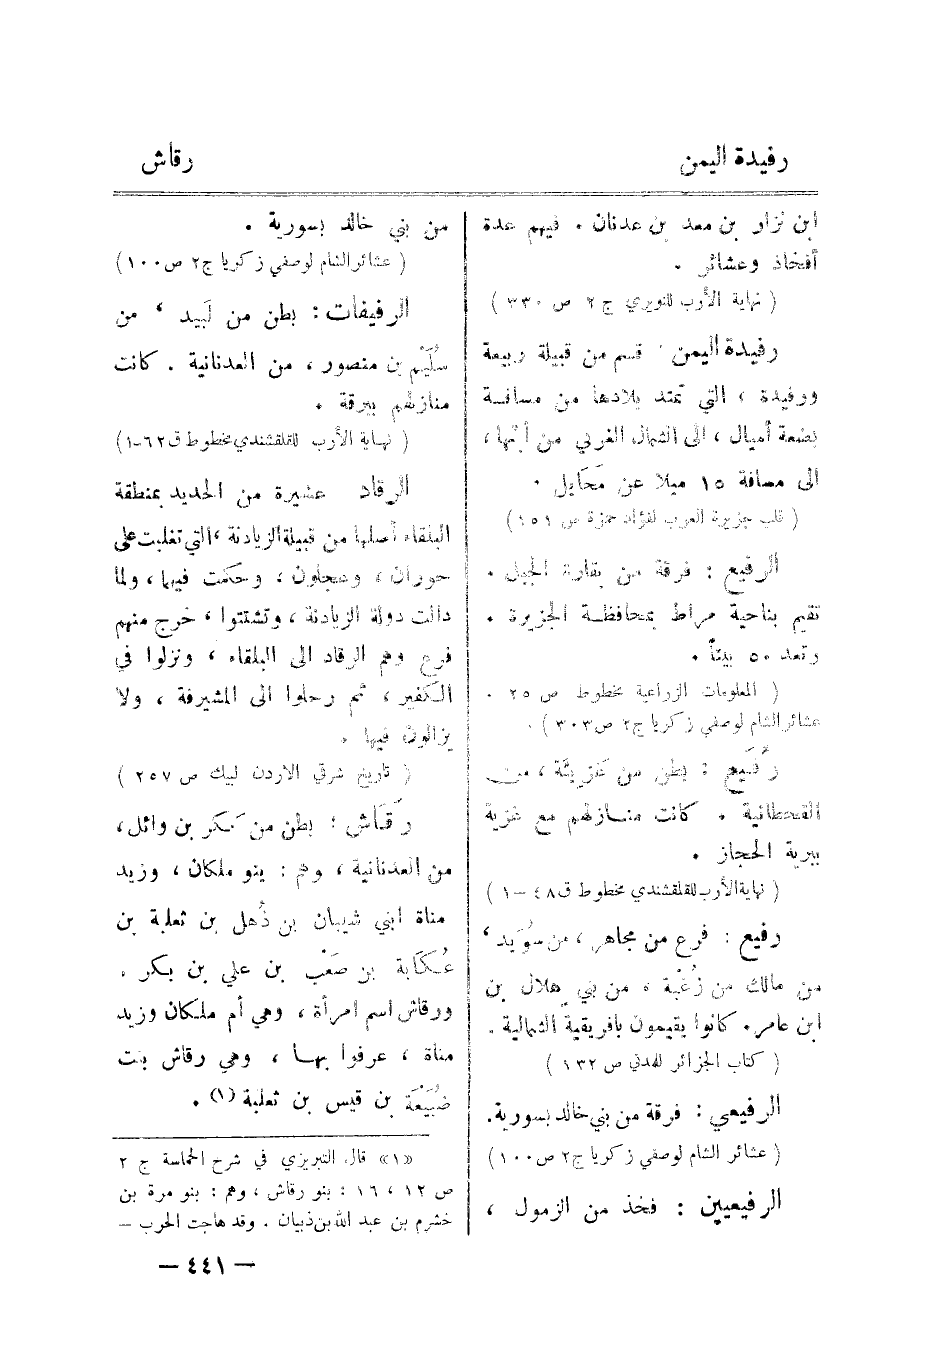 رفيدة اليمن
رقاش
ابن نزار بن معد بن عدنان . فيهم عدة
أفخاذ وعشائر .
( نهاية الأرب للنويري ج ٢ ص ٣٣٠ )
رفيدة اليمن : قسم من قبيلة ربيعة
ورفيدة ، التي تمتد بلادها من مسافة
بضعة أميال ، الى الشمال الغربي من أبها ،
الى مسافة ١٥ ميلا عن محَايل .
( قلب جزيرة العرب لفؤاد حمزة ص ١٥١)
الرفيع : فرقة من بقارة الجبل .
تقيم بناحية مراط بمحافظة الجزيرة .
وتعد ٥٠ بيتاً .
( المعلومات الزراعية مخطوط ص ٢٥ .
عشائر الشام لوصفي زكريا ج٢ ص٣٠٣ ) .
رُفَيع : بطن من غَزِيَّة ، من
القحطانية . كانت منازلهم مع غزية
ببرية الحجاز .
( نهاية الأرب للقلقشندي مخطوط ق٤٨ -١ )
رفيع : فرع من مجاهر ، من سُوَيد ،
من مالك من زُغْبة ، من بني هلال بن
ابن عامر. كانوا يقيمون بافريقية الشمالية .
( كتاب الجزائر للمدني ص ١٣٢ )
الرفيعي : فرقة من بني خالد بسورية.
( عشائر الشام لوصفي زكريا ج٢ ص١٠٠ )
الرفيعيين : فخذ من الزمول ،
من بني خالد بسورية .
( عشائر الشام لوصفي زكريا ج٢ ص١٠٠ )
الرفيفات : بطن من لَبيد ، من
سُلَيْم بن منصور ، من العدنانية . كانت
منازلهم ببرقة .
( نهاية الأرب للقلقشندي مخطوط ق٦٢-١)
الرقاد عشيرة من الحديد بمنطقة
البلقاء أصلها من قبيلة الزيادنة ، التي تغلبت على
حوران ، وعجلون ، وحكمت فيها ، ولما
دالت دولة الزيادنة ، وتشتتوا ، خرج منهم
فرع وهم الرقاد الى البلقاء ، ونزلوا في
الكفير ، ثم رحلوا الى المشيرفة ، ولا
يزالون فيها .
( تاريخ شرقي الاردن لبيك ص ٢٥٧ )
رَقَاش : بطن من بكر بن وائل،
من العدنانية ، وهم : بنو ملكان ، وزيد
مناة ابني شيبان بن ذُهل بن ثعلبة بن
عُكَابة بن صَعْب بن علي بن بكر .
ورقاش اسم امرأة ، وهي أم ملكان وزيد
مناة ، عرفوا بها ، وهي رقاش بنت
ضُبَيْعَة بن قيس بن ثعلبة (١) .
«١» قال التبريزي في شرح الحماسة ج ٢
ص ١٢ ، ١٦ : بنو رقاش ، وهم : بنو مرة بن
خشرم بن عبد الله بن ذبيان . وقد هاجت الحرب –
— ٤٤١ —